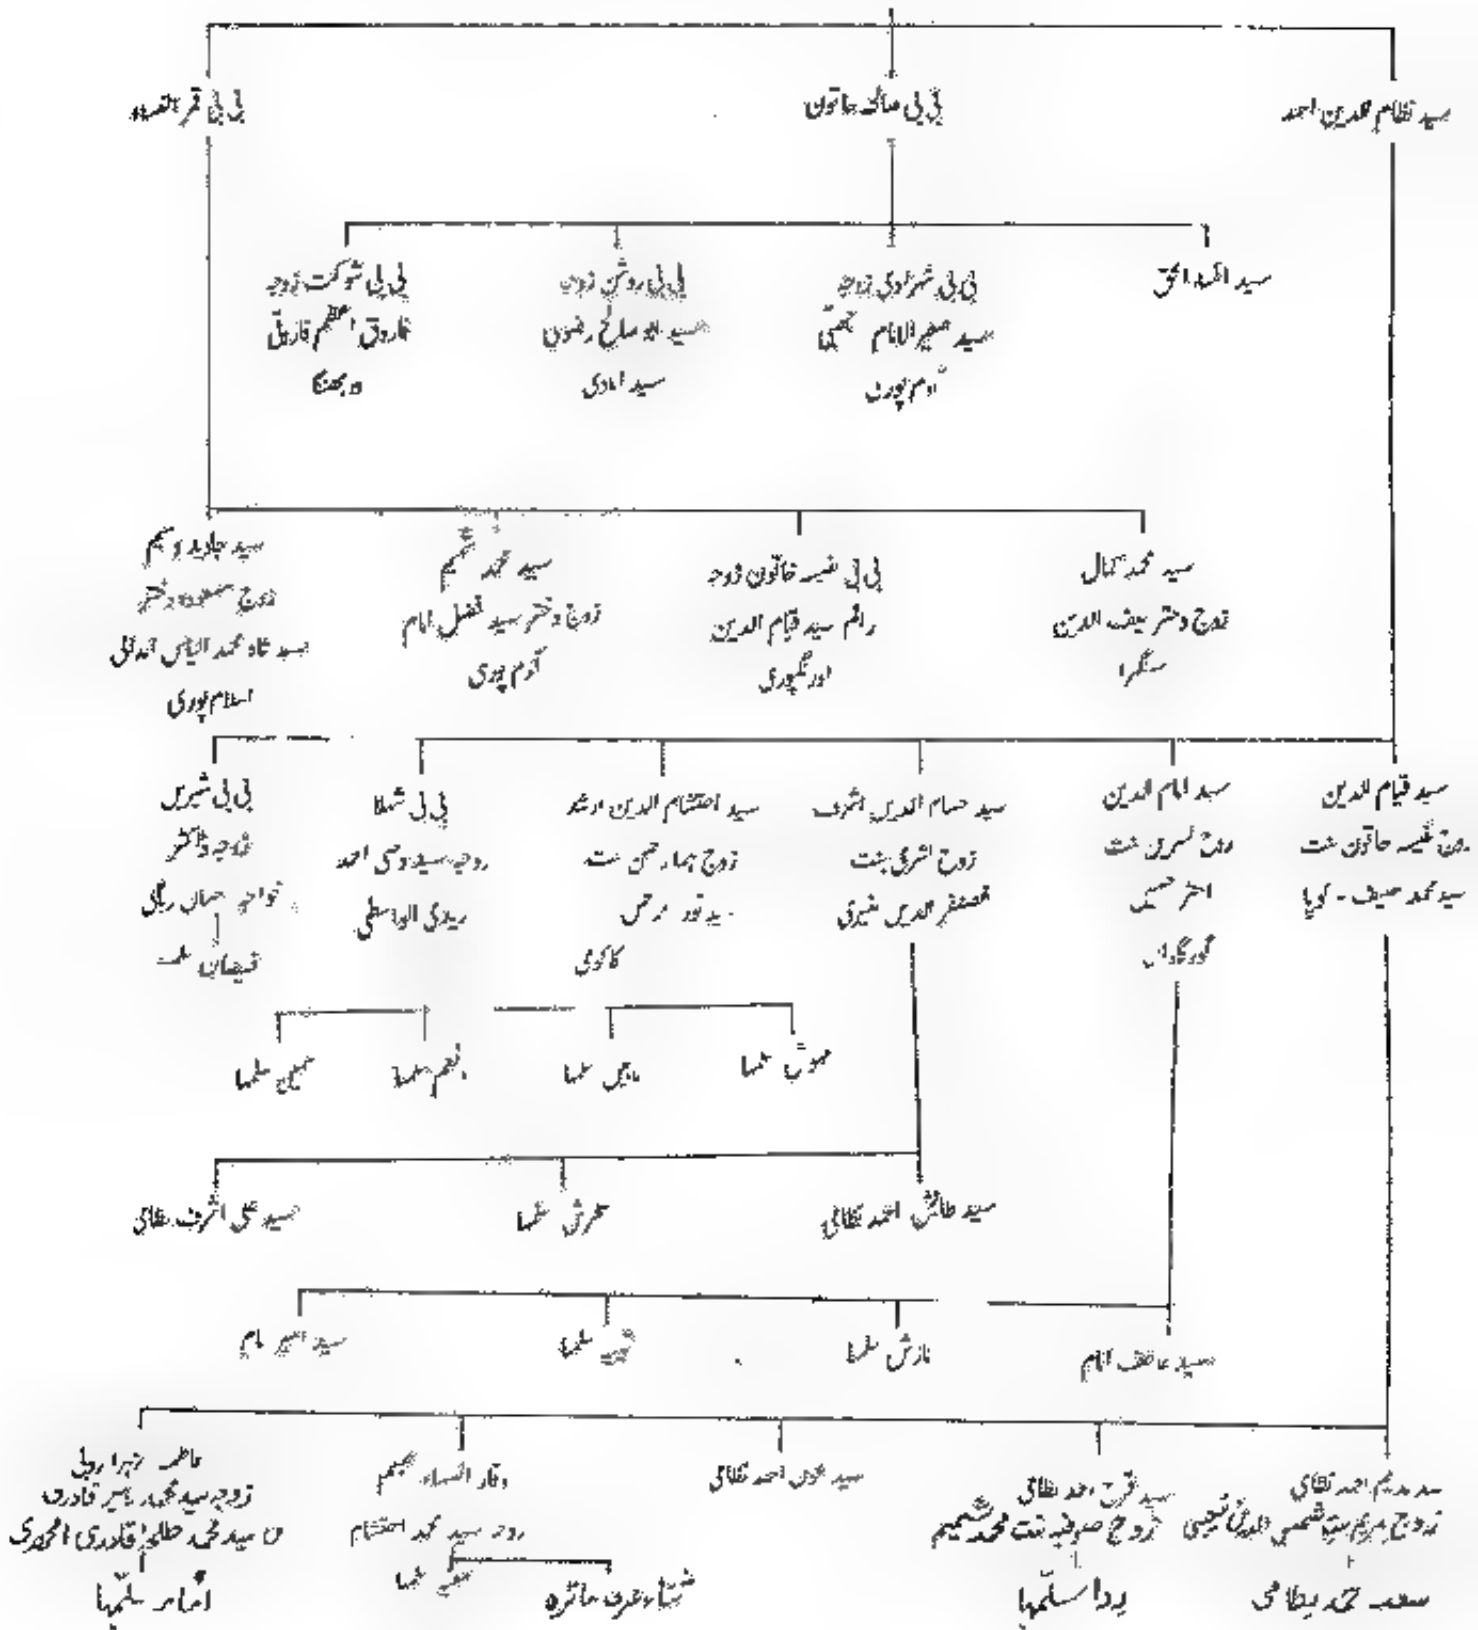 سید نظام الدین احمد
بی بی صالحہ خاتون
بی بی قمر النساء
سید اظہار الحق
بی بی شہزادی زوجہ
سید صغیر الامام نعیمی
آدم پوری
بی بی روشن زوجہ
سید ابو صالح رضوی
سید آبادی
بی بی شوکت زوجہ
فاروق اعظم فاروقی
دربھنگا
سید محمد کمال
زوج دختر سیف الدین
سنگرا
بی بی نفیسہ خاتون زوجہ
راقم سید قیام الدین
اورنگپوری
سید محمد شمیم
زوج دختر سید فضل امام
آدم پوری
سید جاوید وسیم
زوج مسعودہ دختر
سید شاہ محمد الیاس
اسلام پوری
سید قیام الدین
زوج نفیسہ خاتون بنت
سید محمد حنیف - کویا
سید امام الدین
زوج نسرین بنت
اختر حسین
گورگاواں
سید حسام الدین اشرف
زوج اشرفی بنت
غضنفر الدین منیری
سید احتشام الدین ارشد
زوج بہار حسن بنت
سید نور الحسن
کاکوی
بی بی شہلا
زوجہ سید وصی احمد
زیدی الواسطی
بی بی شیریں
زوجہ ڈاکٹر
خواجہ جہاں
فیضان سلمہ
مہوش سلمہا
ماہین سلمہا
انعم سلمہا
سلمہا
سید طائش احمد نظامی
عرش سلمہا
سید علی اشرف نظامی
سید عاطف امام
نازش سلمہا
ثمینہ سلمہا
سید امیر امام
سید ندیم احمد نظامی
زوج مریم بنت شمس الدین نعیمی
سعد محمد نظامی
سید فرخ احمد نظامی
زوج صوفیہ بنت محمد شمیم
ردا سلمہا
سید عون احمد نظامی
وقار النساء شمیم
زوجہ سید محمد احتشام
سلمہا
شیبا عرف مائرہ
فاطمہ زہرا روبی
زوجہ سید محمد زبیر قادری
بن سید محمد طلحہ قادری امجھری
امامہ سلمہا